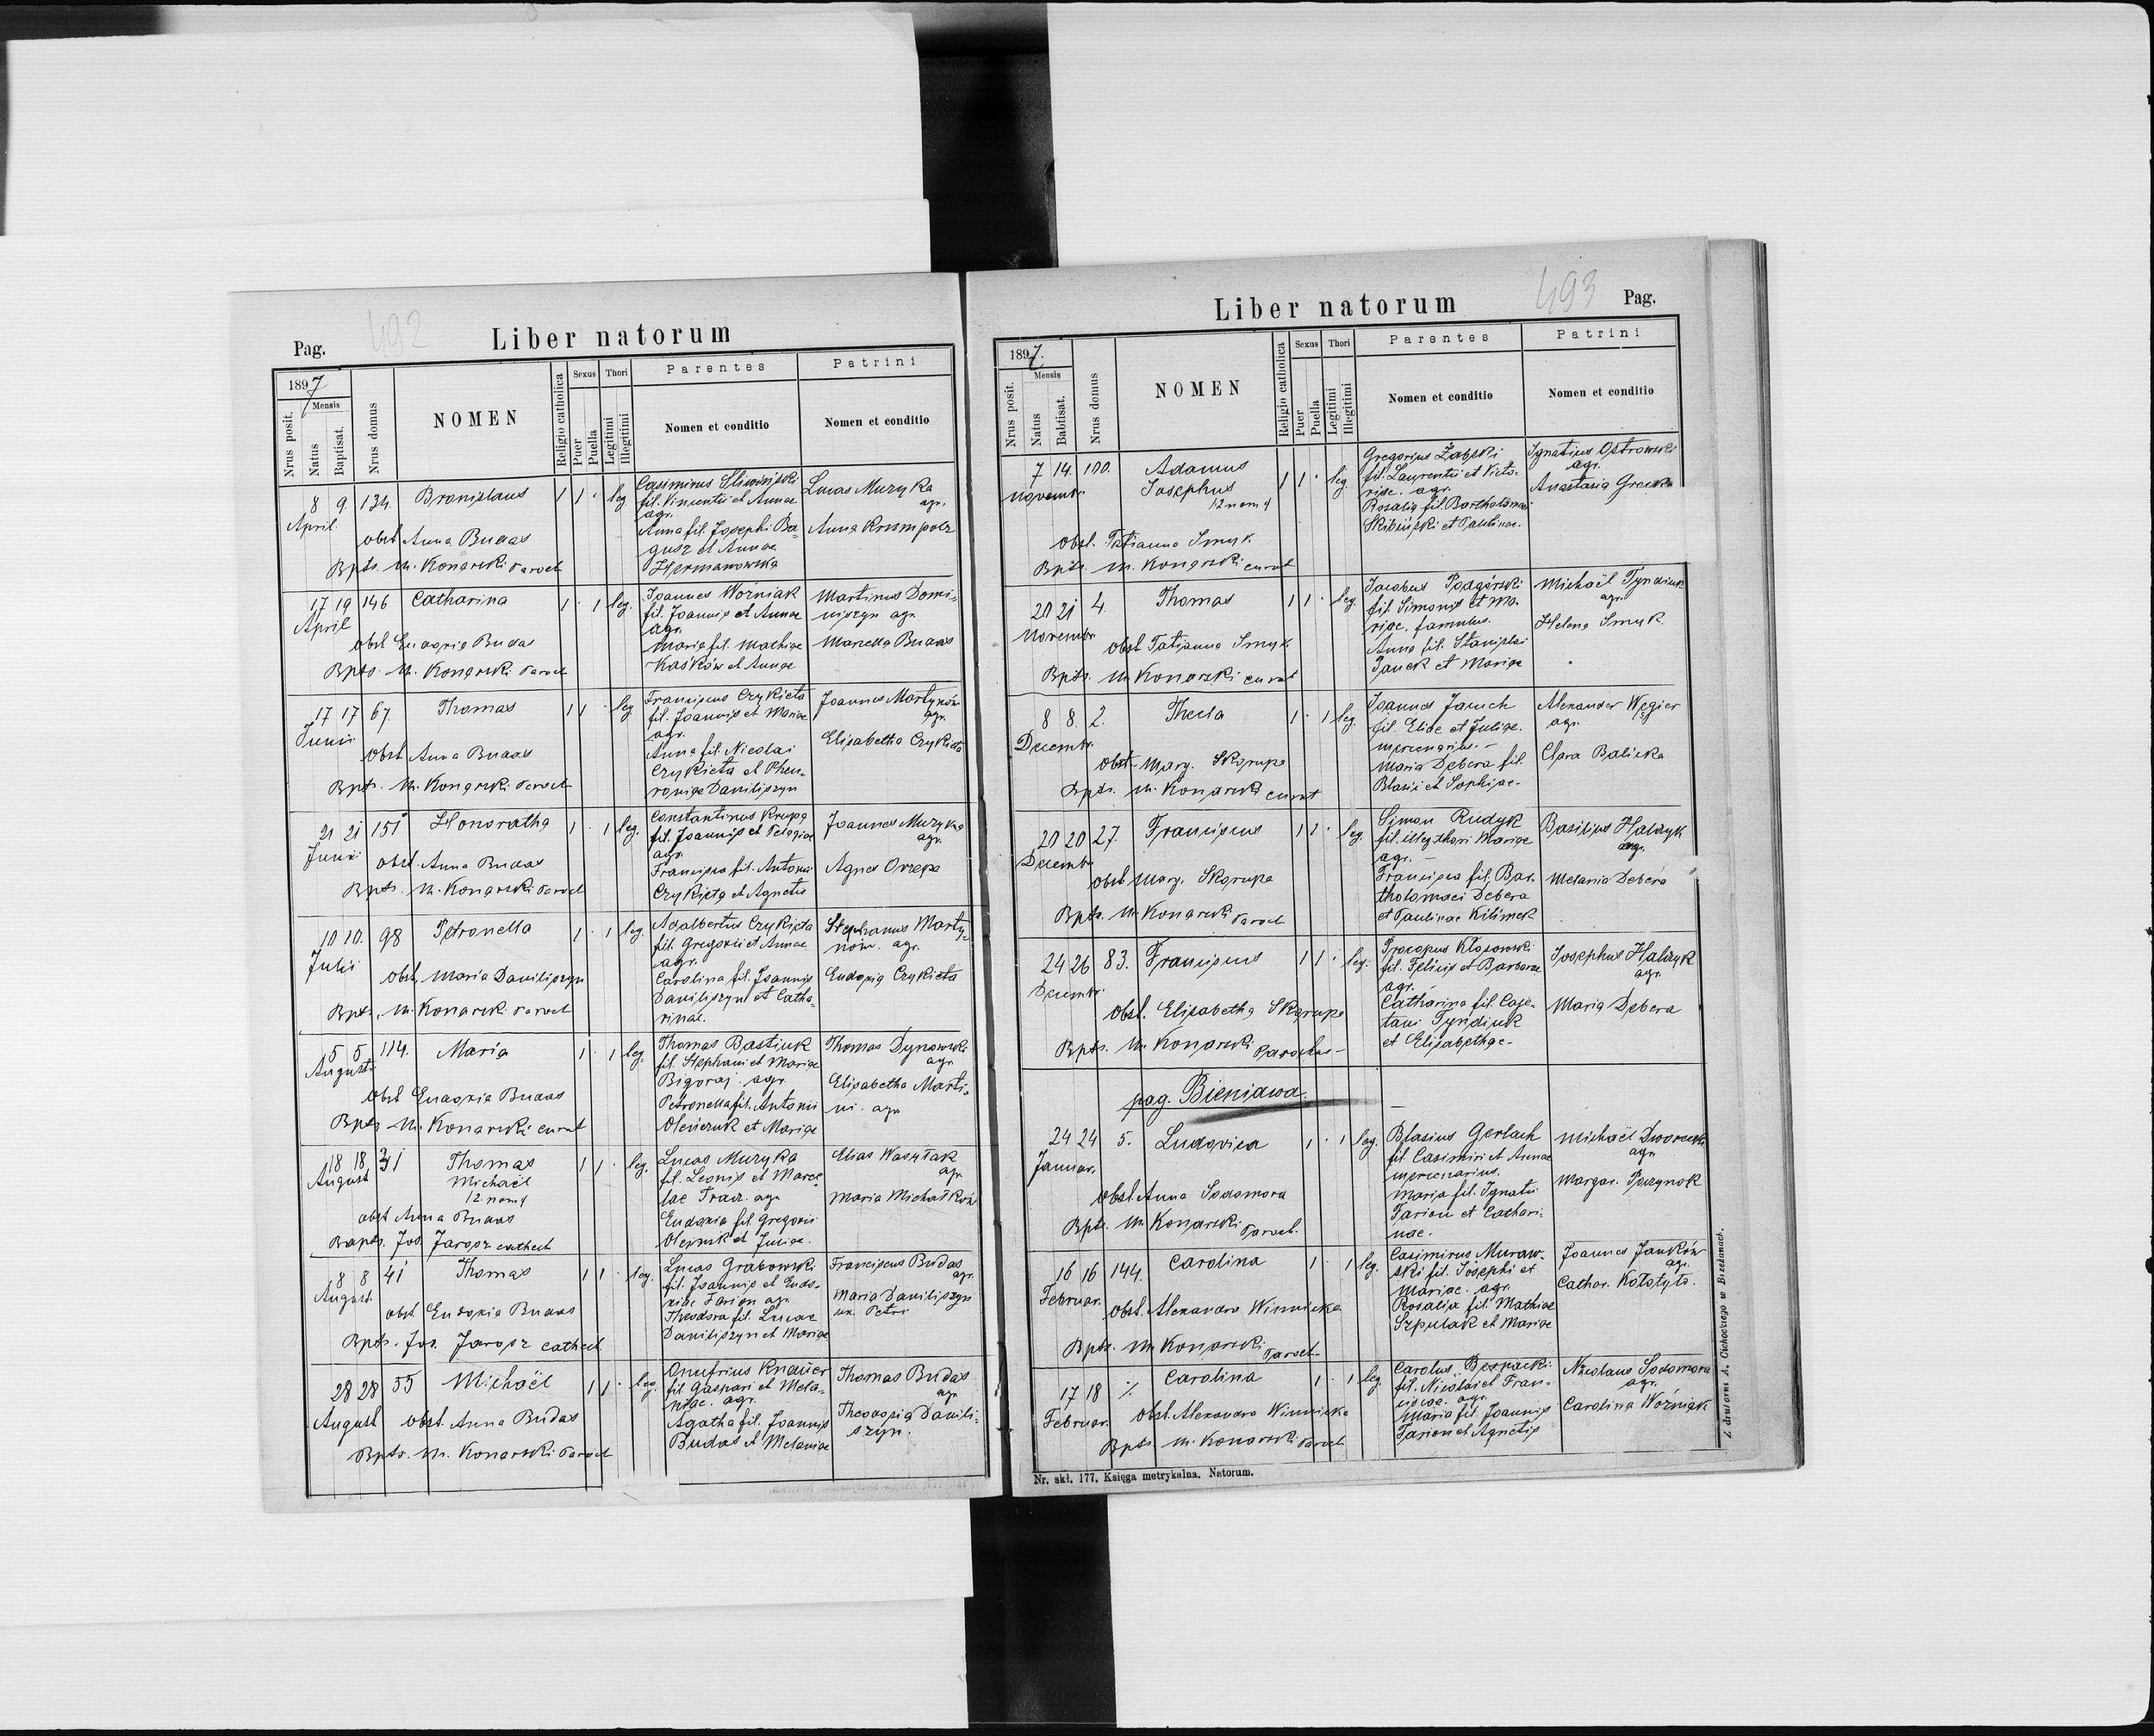 492
Pag.
Liber natorum
1897
Mensis
Nrus posit.
Natus
Baptisat.
Nrus domus
NOMEN
Religio catholica
Sexus
Puer
Puella
Thori
Legitimi
Illegitimi
Parentes
Nomen et conditio
Patrini
Nomen et conditio
8 9. 134. Bronislaus 1 1 · leg
April
obst Anna Budas
Bpts. M. Konarski Paroch
Casimirus
fil. Vincentii et Annae
agr.
Anna fil. Josephi Be-
gusz et Annae
Hermanowska
Lucas Muzyka
agr.
Anna Krumpolz
17 19 146 Catharina 1 · 1 leg.
April
obst Eudoxia Budas
Bpts. M. Konarski Paroch
Joannes Woźniak
fil. Joannis et Annae
agr.
Maria fil. Mathiae
Kaśków et Annae
Martinus Domi-
niszyn agr.
Marcella Budas
17 17 67. Thomas 1 1 · leg
Junii
Obst Anna Budas
Bpts. M. Konarski Paroch
Franciscus Czykieta
fil. Joannis et Mariae
agr.
Anna fil. Nicolai
Czykieta et Pheu-
roniae Daniliszyn
Joannes Martynów
agr.
Elisabetha Czykieta
21 21 151 Honoratha 1 · 1 leg.
Junii
obst. Anna Budas
Bpts. M. Konarski Paroch
Constantinus Krupa
fil. Joannis et Pelagiae
agr.
Francisca fil. Antonii
Czykieta et Agnetis
Joannes Muzyka
agr.
Agnes Orzepa
10 10. 98 Petronella 1 · 1 leg.
Julii
obst. Maria Daniliszyn
Bpts. M. Konarski Paroch
Adalbertus Czykieta
fil. Gregorii et Annae
agr.
Carolina fil. Joannis
Daniliszyn et Catha-
rinae.
Stephanus Marty-
nów. agr.
Eudoxia Czykieta
5 5 114. Maria 1 · 1 leg
August
obst Eudoxia Budas
Bpts M. Konarski curat
Thomas Bastiuk
fil. Stephani et Mariae
Bigoraj. agr.
Petronella fil. Antonii
Olenczuk et Mariae
Thomas Dynowski
agr.
Elisabetha Marti-
ni. agr
18 18 31 Thomas 1 1 · leg.
August
Michaël
12 nom
obst Anna Budas
Bapts. Jos. Jarosz cathect
Lucas Muzyka
fil. Leonis et Marce-
lae Tracz. agr
Eudoxia fil. Gregorii
Olejnik et Juliae.
Elias Wasylak
agr
Maria Michałków
8 8 41 Thomas 1 1 · leg.
August.
obst Eudoxia Budas
Bpts. Jos. Jarosz cathect
Lucas Grabowski
fil. Joannis et Eudo-
xiae Farion agr.
Theodora fil. Lucae
Daniliszyn et Mariae
Franciscus Budas
agr.
Maria Daniliszyn
ux. Petri
28 28 55 Michaël 1 1 · leg.
August
obst. Anna Budas
Bpts. M. Konarski Paroch
Onufrius Knauer
fil. Gaspari et Mela-
niae. agr.
Agatha fil. Joannis
Budas et Melaniae
Thomas Budas
agr
Theodosia Danili-
szyn.
493
Liber natorum
Pag.
1897.
Mensis
Nrus posit.
Natus
Babtisat.
Nrus domus
NOMEN
Religio catholica
Sexus
Puer
Puella
Thori
Legitimi
Illegitimi
Parentes
Nomen et conditio
Patrini
Nomen et conditio
7 14. 100. Adamus 1 1 · leg
Novembr.
Josephus
12 nom
Obst. Tatianna Smyk
Bpts. M. Konarski curat
Gregorius Żabski
fil. Laurentii et Victo-
riae. agr.
Rosalia fil. Bartholomaei
Skibiński et Paulinae.
Ignatius Ostrowski
agr.
Anastasia
20 21 4. Thomas 1 1 · leg.
Novembr
obst Tatianna Smyk
Bpts. M. Konarski curat
Jacobus Podgórski
fil. Simonis et Ma-
riae. famulus.
Anna fil. Stanislai
Panek et Mariae
Michaël Tyndiuk
agr.
Helena Smyk
8 8. 2. Thecla 1 · 1 leg.
Decembr.
obst. Mary. Skarupa
Bpts. M. Konarski curat
Joannes Jauch
fil. Eliae et Juliae.
mercenarius. -
Maria Debera fil.
Blasii et Sophiae.
Alexander Węgier
agr.
Clara Balicka
20 20 27. Franciscus 1 1 · leg.
Decembr
obst Mary. Skarupa
Bpts. M. Konarski Paroch
Simon Rudyk
fil. illeg. thori Mariae
agr. -
Francisca fil. Bar-
tholomaei Debera
et Paulinae Kilimek
Basilius Haldzyk
agr.
Melania Debera
24 26 83. Franciscus 1 1 · leg.
Decembr.
obst. Elisabetha Skarupa
Bpts. M. Konarski Parochus -
Procopus Kłosowski
fil. Felicis et Barbarae
agr.
Catharina fil. Caje-
tani Tyndiuk
et Elisabethae -
Josephus Haldzyk
agr.
Maria Debera
pag. Bieniawa
24 24 5. Ludovica 1 · 1 leg.
Januar.
obst. Anna Sodomora
Bpts. M. Konarski Paroch.
Blasius Gerlach
fil Casimiri et Annae
mercenarius.
Maria fil. Ignatii
Farion et Cathari-
nae.
Michaël Dworecki
agr
Margar.
16 16 144. Carolina 1 · 1 leg.
Februar.
obst. Alexandra Winnicka
Bpts. M. Konarski Paroch.
Casimirus Muraw-
ski fil. Josephi et
Mariae. agr.
Rosalia fil. Mathiae
Szpulak et Mariae
Joannes Janków
agr.
Cathar. Kołotyło.
17 18 ٪ Carolina 1 · 1 leg
Februar.
obst. Alexandra Winnicka
Bpts M. Konarski Paroch
Carolus
fil. Nicolai et Fran-
ciscae. agr.
Maria fil. Joannis
Farion et Agnetis
Nicolaus Sodomora
agr.
Carolina Woźniak
Nr. skł. 177. Księga metrykalna. Natorum.
Z drukarni A. Cichockiego w Brzeżanach.